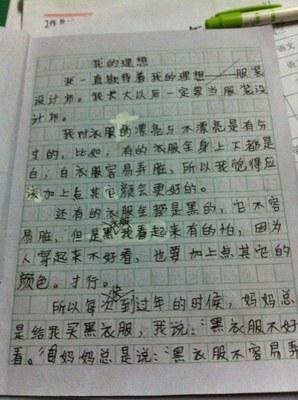 我的理想
我一直期待着我的理想——服装
设计师。我长大以后一定要当服装设
计师。
我对衣服的漂亮与不漂亮是有分
寸的，比如，有的衣服全身上下都是
白，白衣服容易弄脏，所以我觉得应
该加上点其它颜会更好的。
还有的衣服全都是黑的，它不容
易脏，但是黑衣服看起来有的怕，因为
人穿起来不好看，也要加上点其它的
颜色。才行。
所以每次快到过年的时候，妈妈总
是给我买黑衣服，我说：“黑衣服不好
看。”妈妈总是说：“黑衣服不容易弄